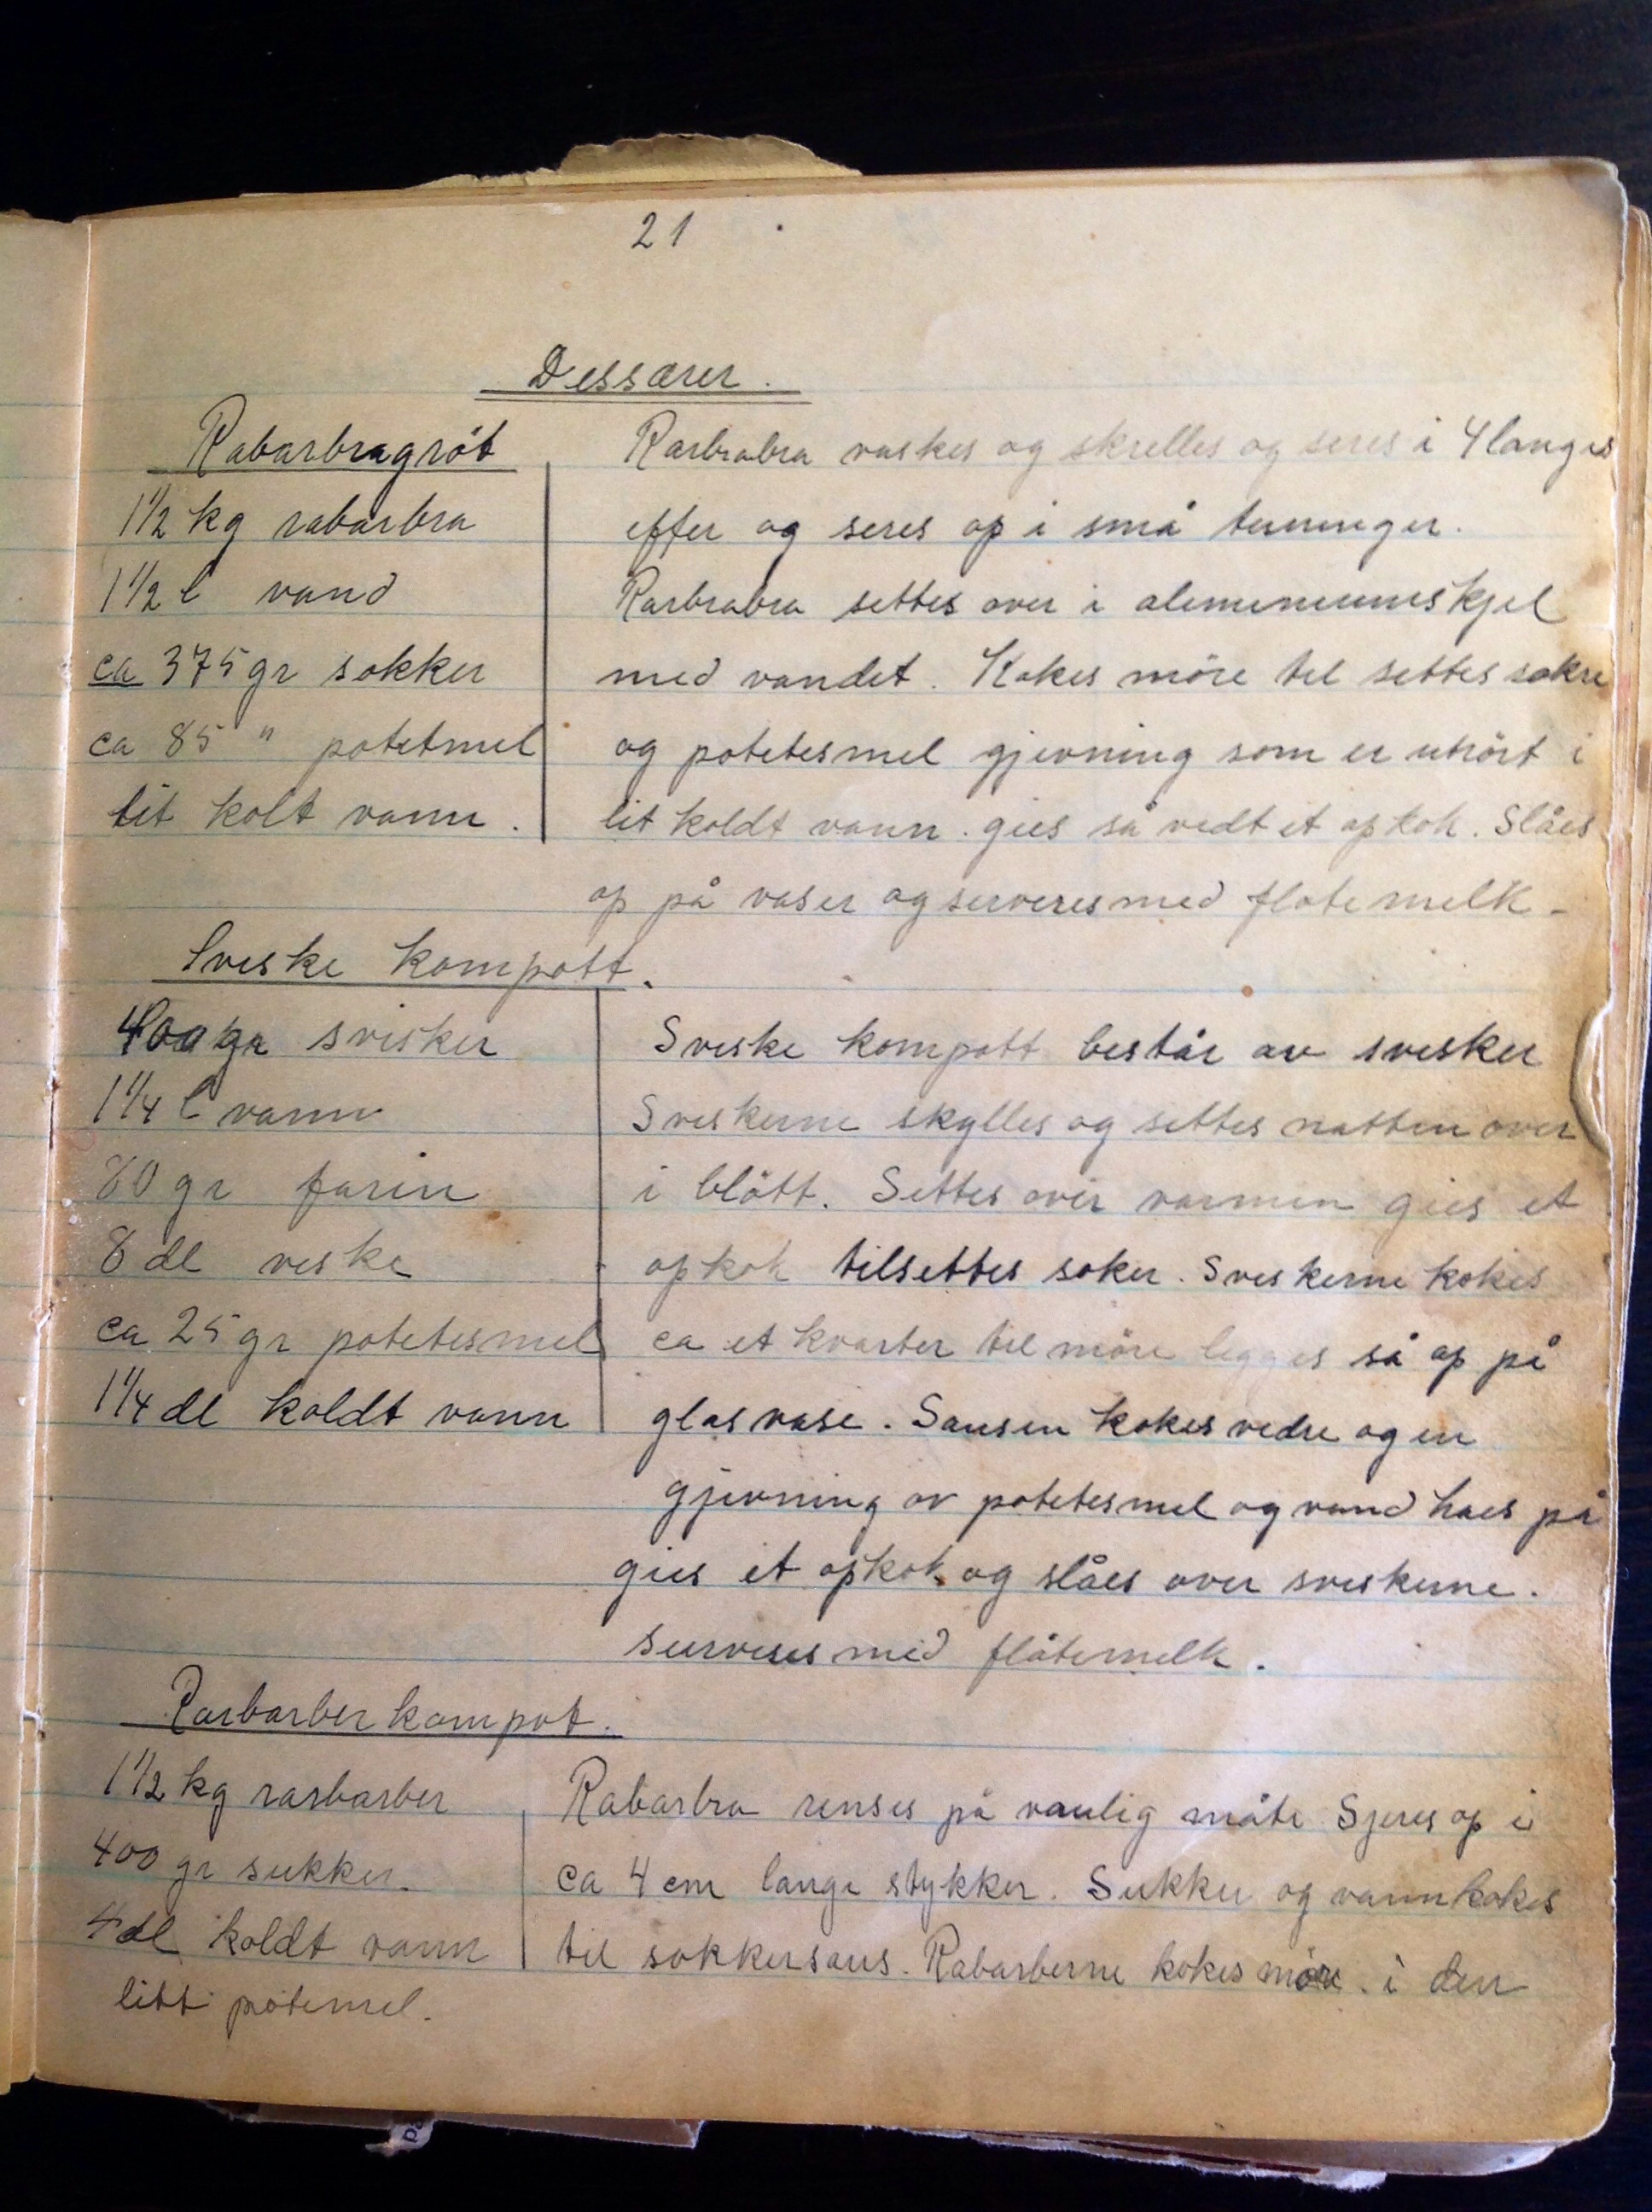 21
Dessærer.
Rabarbragröt
1½ kg rabarbra
1½ l vand
ca 375 gr sokker
ca 85 " potetmel
lit kolt vann.
Rarbrabra vaskes og skrelles og seres i 4 langes
efter og seres op i små terninger.
Rarbrabra settes over i alemeniumskjel
med vandet. Kokes möre til settes sokre
og potetesmel gjevning som er utrört i
lit koldt vann. gies så vedt et opkok. Slåes
op på vaser og serveres med flöte melk -
Sveske kompott.
400 gr svisker
1¼ l vann
80 gr farin
8 dl veske
ca 25 gr potetesmel
1¼ dl koldt vann
Sveske kompott består av svesker
Sveskerne skylles og settes natten over
i blött. Settes over varmen gies et
opkok tilsettes soker. Sveskerne kokes
ca et kvarter til möre legges så op på
glasvase. Sausen kokes vedre og en
gjevning av potetesmel og vand haes på
gies et opkok og slåes over sveskerne.
Serveres med flötemelk.
Rarbarber kompot.
1½ kg rarbarber
400 gr sukker.
4 dl koldt vann
litt potemel.
Rabarbra renses på vanlig måte Sjeres op i
ca 4 cm lange stykker. Sukker og vann kokes
til sokkersaus. Rabarberne kokes möre. i den